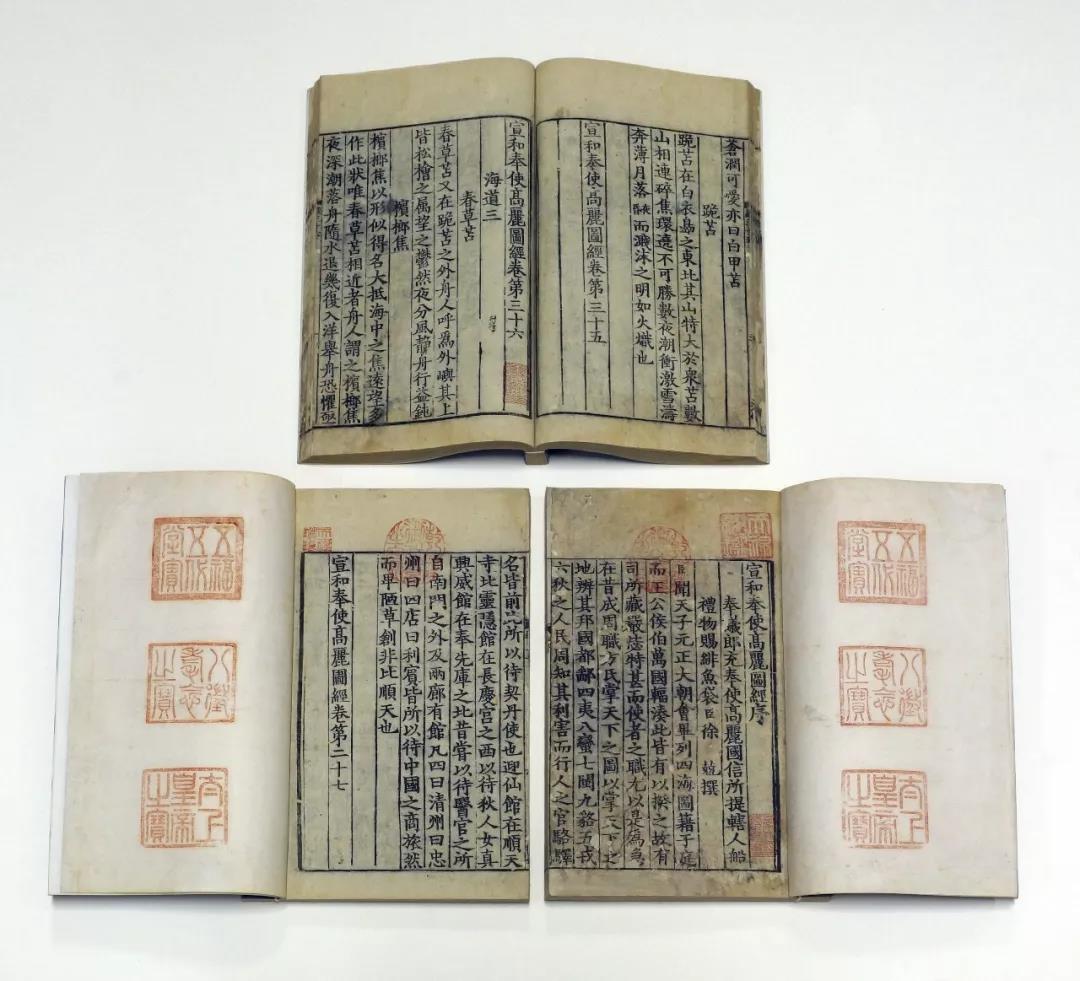 蒼潤可愛亦曰白甲苫
跪苫
跪苫在白衣島之東北其山特大於衆苫數
山相連碎焦環遶不可勝數夜潮衝激雪濤
奔薄月落而濺沫之明如火熾也
宣和奉使髙麗圖經卷第三十五
宣和奉使髙麗圖經卷第三十六
海道三
春草苫
春草苫又在跪苫之外舟人呼爲外嶼其上
皆松檜之属望之鬱然夜分風静舟行益鈍
檳榔焦
檳榔焦以形似得名大抵海中之焦遠望多
作此狀唯春草苫相近者舟人謂之檳榔焦
夜深潮落舟隨水退幾復入洋舉舟恐懼亟
五福五代堂寶
八徵耄念之寶
太上皇帝之寶
宣和奉使髙麗圖經序
奉義郎充奉使髙麗國信所提轄人船
禮物賜緋魚袋臣徐兢撰
臣聞天子元正大朝會畢列四海圖籍于庭
而王公侯伯萬國輻湊此皆有以揆之故有
司所藏嚴毖特甚而使者之職尤以是爲急
在昔成周職方氏掌天下之圖以掌天下之
地辨其邦國都鄙四夷八蠻七閩九貉五戎
六狄之人民周知其利害而行人之官駱驛
名皆前此所以待契丹使也迎仙館在順天
寺北靈隠館在長慶宫之西以待狄人女真
興威館在奉先庫之北昔嘗以待醫官之所
自南門之外及兩廊有館凡四曰清州曰忠
州曰四店曰利賓皆所以待中國之商旅然
而卑陋草創非比順天也
宣和奉使髙麗圖經卷第二十七
五福五代堂寶
八徵耄念之寶
太上皇帝之寶